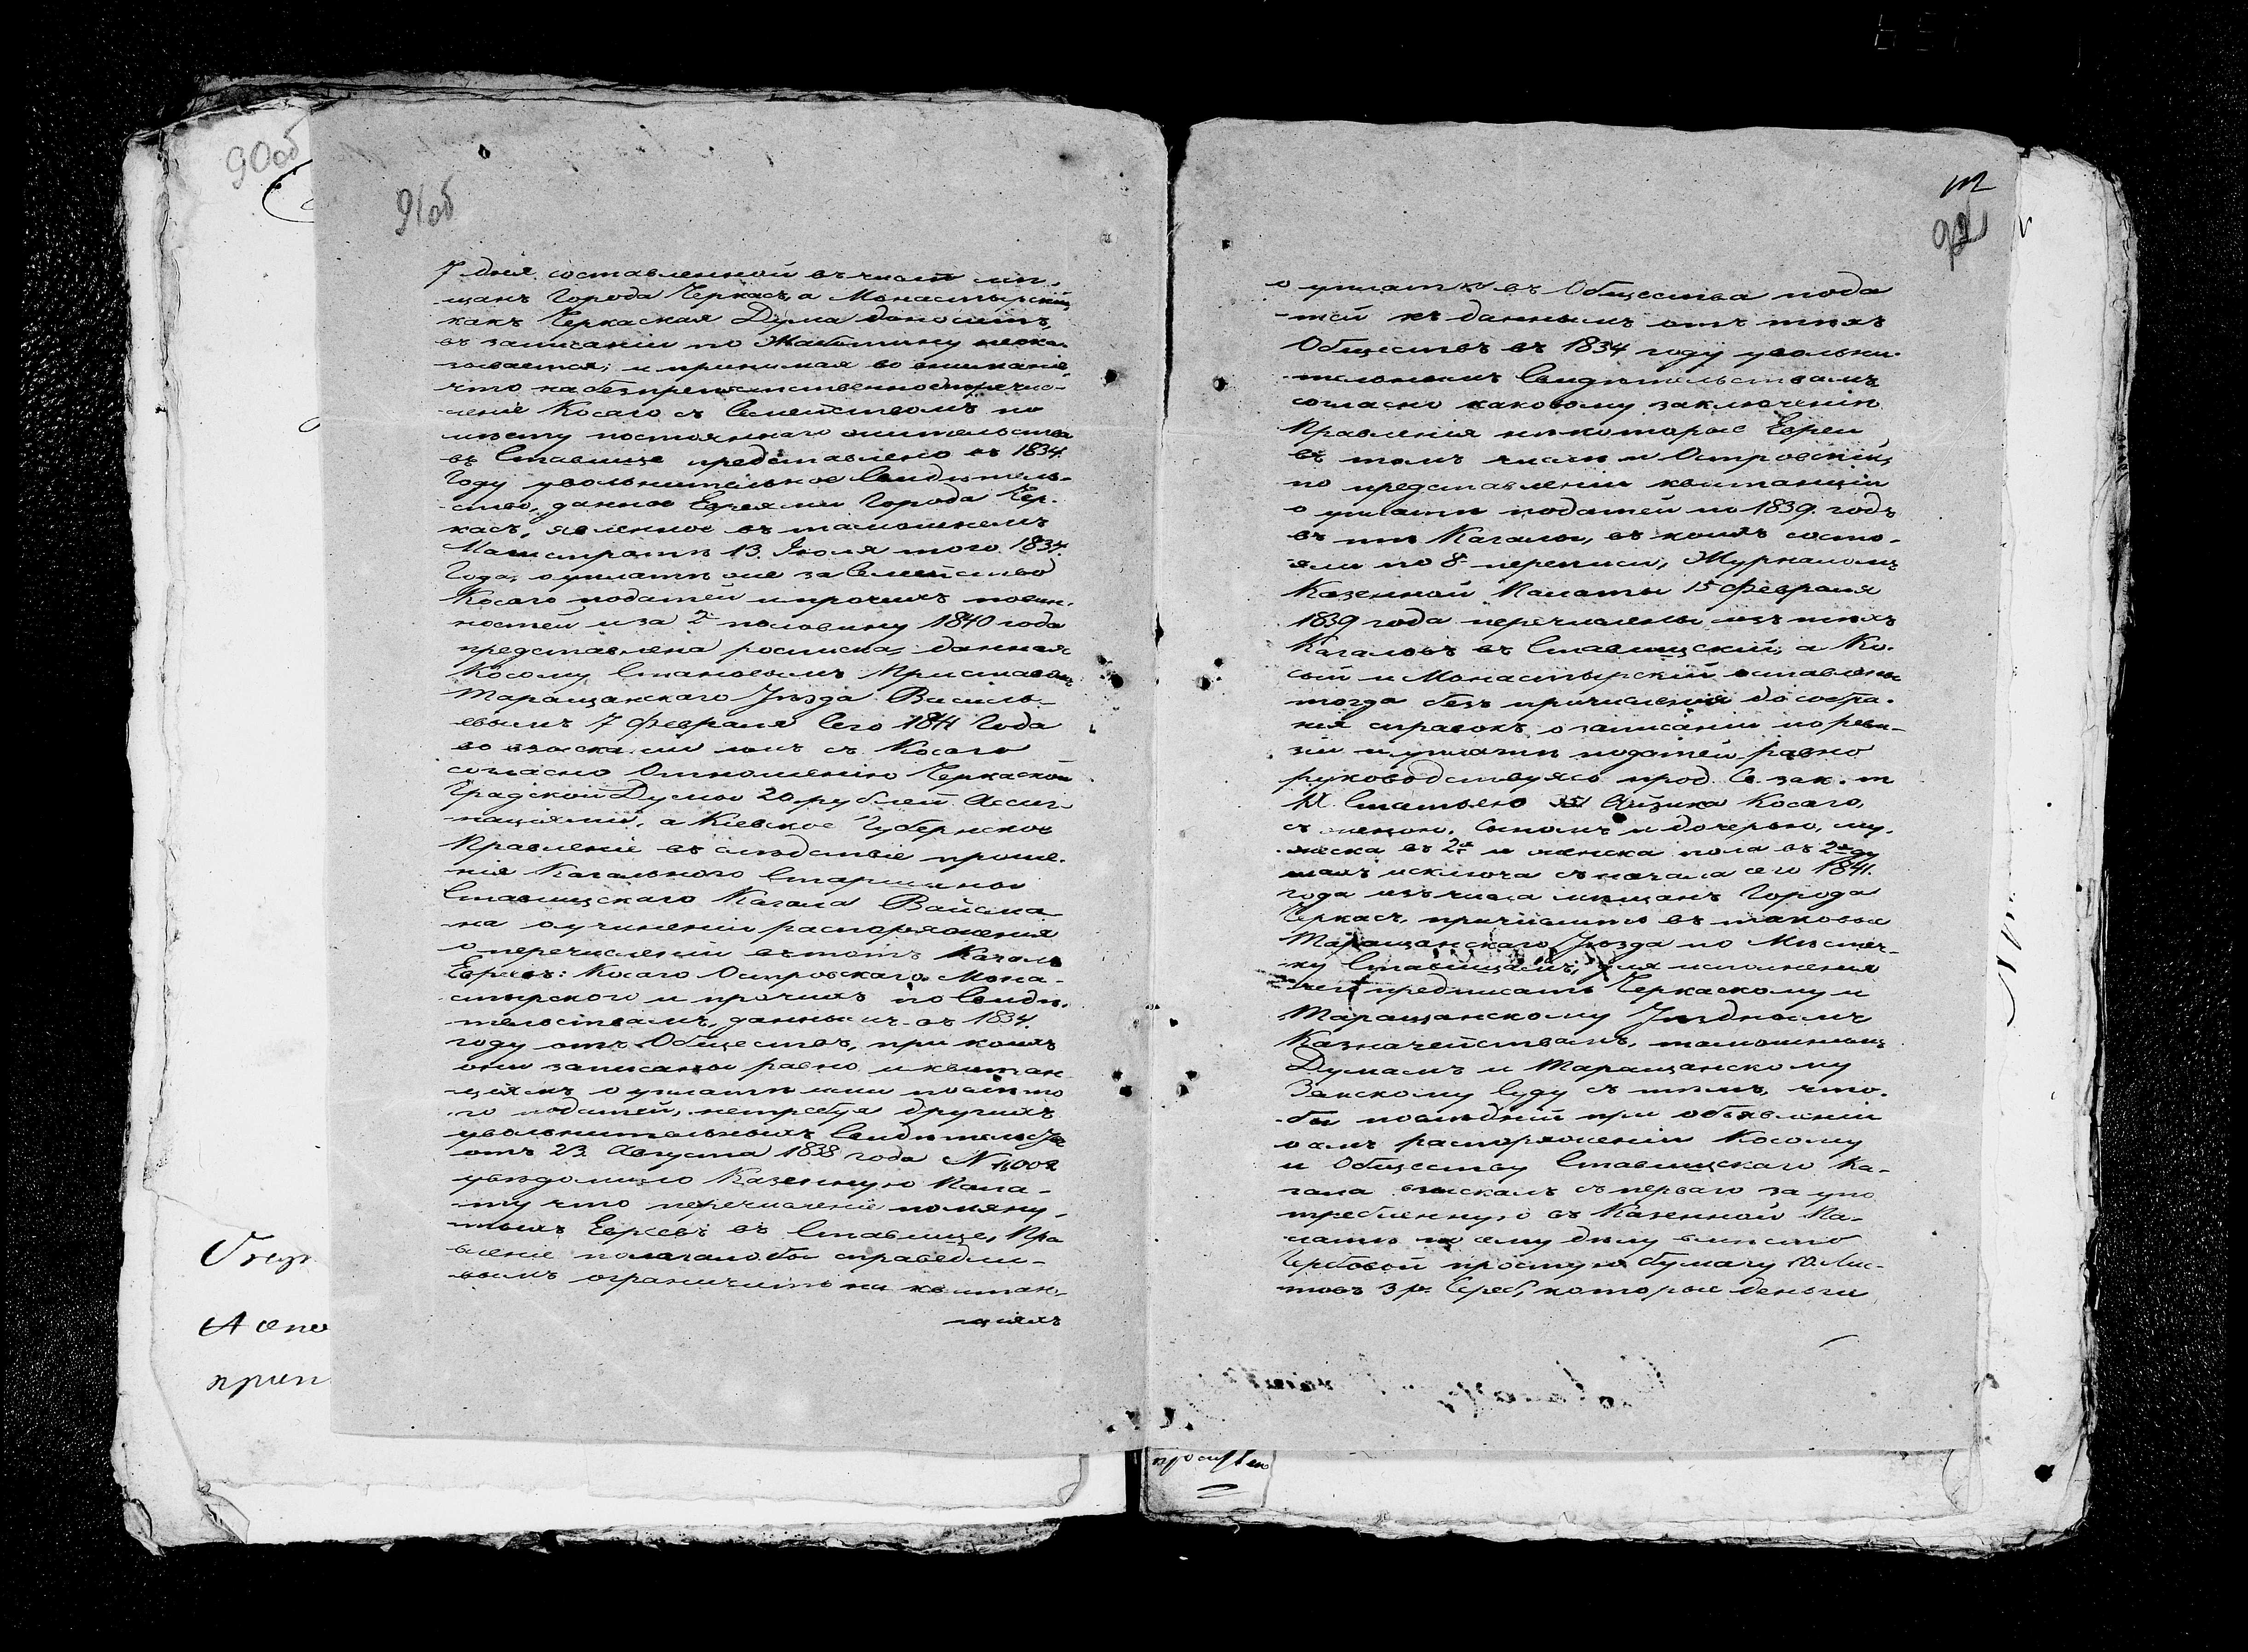 90об
91об
7 дня составленной въ числѣ мѣ-
щанъ Города Черкасъ, а Монастырскій
какъ Черкаская Дума доноситъ,
въ записаніи по Жаботину неока-
зывается; и принимая во вниманіе,
что на безпрепятственное перечис-
леніе Косаго съ Семействомъ по
мѣсту постояннаго жительства
въ Ставище представлено въ 1834.
Году увольнительное Свидѣтель-
ство, данное Евреями Города Чер-
касъ, явленное въ тамошнемъ
Магистратѣ 13. Іюля того 1834.
Года, о уплатѣ же за Семейство
Косаго податей и прочихъ повин-
ностей и за 2ю половину 1840 года
представлена росписка, данная
Косому Становымъ Приставомъ
Таращанскаго Уѣзда Василь-
евымъ 7 Февраля сего 1841 Года
во взысканіи имъ съ Косаго
согласно Отношенію Черкаской
Градской Думы 20 рублей Ассиг-
націями, а Кіевское Губернское
Правленіе въ слѣдствіе проше-
нія Кагального Старшины
Ставищскаго Кагала Вайсма
на о учиненіи распоряженія
о перечисленіи въ тотъ Кагалъ
Евреевъ: Косаго Островскаго Мона-
стырского и прочихъ по Свидѣ-
тельствамъ, даннымъ въ 1834.
году отъ Обществъ, при коихъ
они записаны равно и квитан
ціямъ о уплатѣ ими
го податей, нетребуя другихъ
увольнительныхъ Свидѣтельствъ
отъ 23. Августа 1838 года N 11002
увѣдомило Казенную Пала-
ту что перечисленіе помяну-
тыхъ Евреевъ въ Ставище, Пра
вленіе полагало бы справедли-
вымъ ограничить на квитан-
ціяхъ
92
о уплатѣ въ Общества пода
-тей къ даннымъ отъ тѣхъ
Обществъ въ 1834 году увольни-
тельнымъ Свидѣтельствамъ
согласно каковому заключенію
Правленія нѣкоторые Евреи
въ томъ числѣ и Островскій,
по представленіи квитанціи
о уплатѣ податей по 1839. годъ
въ тѣ Кагалы, въ коихъ состо-
яли по 8й переписи, Журналомъ
Казенной Палаты 15 Февраля
1839 года перечислены изъ тѣхъ
Кагаловъ въ Ставищскій, а Ко-
сый и Монастырскій оставлены
тогда безъ причисленія до собра-
нія справокъ о записаніи по реви-
зіи и уплатѣ податей, равно
руководствуясь прод. Св. зак. т
IX. Статьею Айзика Косаго,
съ женою, Сыномъ и дочерью, му-
жеска въ 2хъ и женска пола въ 2хъ ду
шахъ исключа съ начала сего 1841.
года изъ числа мѣщанъ Города
Черкасъ, причислить въ таковые
Таращанскаго Уѣзда по Мѣстеч-
ку Ставищамъ, для исполненія
чего предписать Черкаскому и
Таращанскому Уѣзднымъ
Казначействамъ, тамошнимъ
Думамъ и Таращанскому
Земскому Суду съ тѣмъ, что-
бы послѣдній при объявленіи
о семъ распоряженіи Косому
и Обществу Ставищскаго Ка-
гала взыскалъ съ перваго за упо
требленную въ Казенной Па-
латѣ по сему дѣлу вмѣсто
Гербовой простую бумагу 10. Лис-
товъ 3 р. Сереб, которые деньги